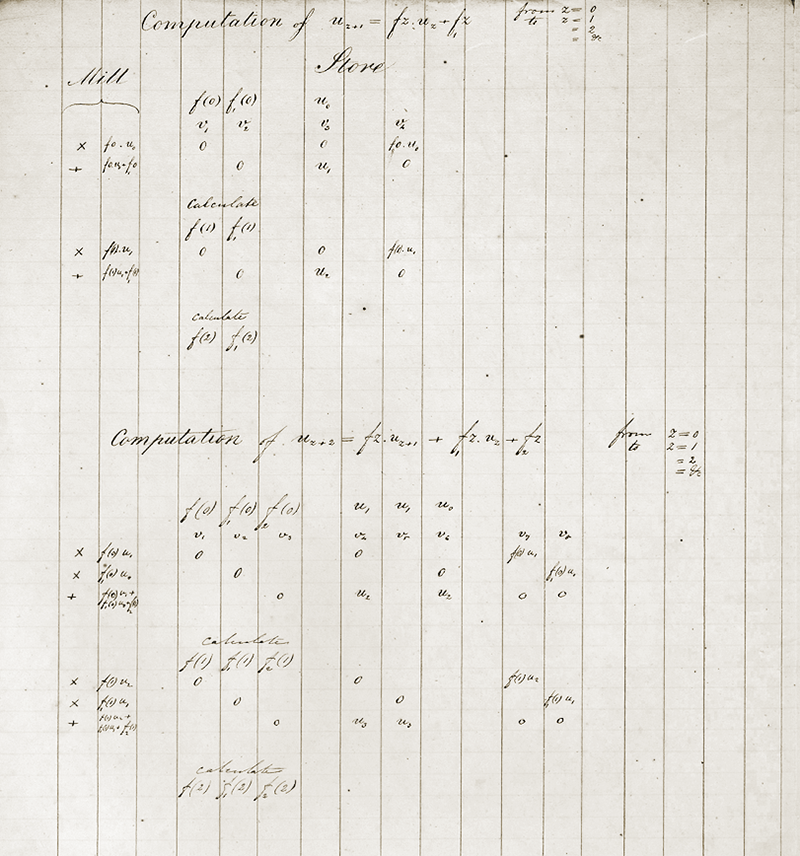 Computation of u_{z+1} = fz.u_z + f₁z from z = 0
to z = 1
= 2
= &c
Mill Store
f(0) f₁(0) u₀
v₁ v₂ v₃ v₄
× f0.u₀ 0 0 f0.u₀
+ f0.u₀+f₁0 0 u₁ 0
calculate
f(1) f₁(1)
× f(1).u₁ 0 0 f(1).u₁
+ f(1)u₁+f₁(1) 0 u₂ 0
calculate
f(2) f₁(2)
Computation of u_{z+2} = fz.u_{z+1} + f₁z.u_z + f₂z from z = 0
to z = 1
= 2
= &c
f(0) f₁(0) f₂(0) u₁ u₁ u₀
v₁ v₂ v₃ v₄ v₅ v₆ v₇ v₈
× f(0)u₁ 0 0 f(0)u₁
× f₁(0)u₀ 0 0
+ f(0)u₁+ 0 u₂ u₂ 0 0
f₁(0)u₀+f₂(0)
calculate
f(1) f₁(1) f₂(1)
× f(1)u₂ 0 0 f(1)u₂
× f₁(1)u₁ 0 0 f₁(1)u₁
+ f(1)u₂+ 0 u₃ u₃ 0 0
f₁(1)u₁+f₂(1)
calculate
f(2) f₁(2) f₂(2)